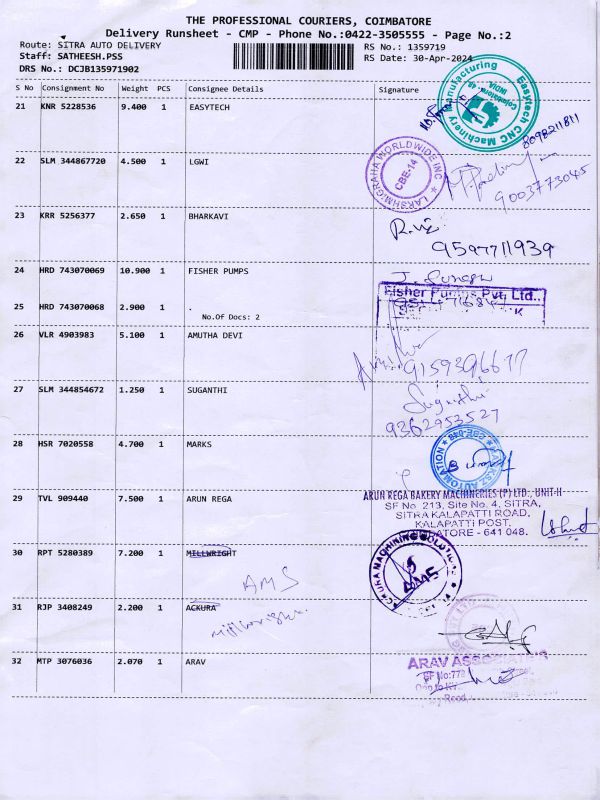 THE PROFESSIONAL COURIERS, COIMBATORE
Delivery Runsheet - CMP - Phone No.:0422-3505555 - Page No.:2
Route: SITRA AUTO DELIVERY
RS No.: 1359719
Staff: SATHEESH.PSS
RS Date: 30-Apr-2024
DRS No.: DCJB135971902
S No Consignment No Weight PCS Consignee Details Signature
21 KNR 5228536 9.400 1 EASYTECH
Easytech CNC Machinery Manufacturing
Coimbatore
INDIA
8098211811
22 SLM 344867720 4.500 1 LGWI
LAKSHMIGRAHA WORLDWIDE INC
CBE-14
9003773045
23 KRR 5256377 2.650 1 BHARKAVI
9597711939
24 HRD 743070069 10.900 1 FISHER PUMPS
Fisher Pumps Pvt. Ltd..
25 HRD 743070068 2.900 1 .
No.Of Docs: 2
26 VLR 4903983 5.100 1 AMUTHA DEVI
9159396677
27 SLM 344854672 1.250 1 SUGANTHI
Suganthi
9362953527
28 HSR 7020558 4.700 1 MARKS
AUTOMATION
CBE-048
29 TVL 909440 7.500 1 ARUN REGA
ARUN REGA BAKERY MACHINERIES (P) LTD., UNIT-II
SF No. 213, Site No. 4, SITRA,
SITRA KALAPATTI ROAD,
KALAPATTI POST.
641 048.
30 RPT 5280389 7.200 1 MILLWRIGHT
AMS
AMS
31 RJP 3408249 2.200 1 ACKURA
Millwright
32 MTP 3076036 2.070 1 ARAV
ARAV ASSOCIATES